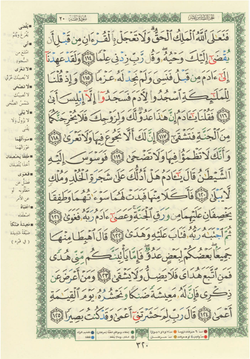 فَتَعَٰلَى ٱللَّهُ ٱلْمَلِكُ ٱلْحَقُّ وَلَا تَعْجَلْ بِٱلْقُرْءَانِ مِن قَبْلِ أَن
يُقْضَىٰٓ إِلَيْكَ وَحْيُهُۥ وَقُل رَّبِّ زِدْنِى عِلْمًا ١١٤ وَلَقَدْ عَهِدْنَآ
إِلَىٰٓ ءَادَمَ مِن قَبْلُ فَنَسِىَ وَلَمْ نَجِدْ لَهُۥ عَزْمًا ١١٥ وَإِذْ قُلْنَا
لِلْمَلَٰٓئِكَةِ ٱسْجُدُوا۟ لِءَادَمَ فَسَجَدُوٓا۟ إِلَّآ إِبْلِيسَ أَبَىٰ ١١٦
فَقُلْنَا يَٰٓـَٔادَمُ إِنَّ هَٰذَا عَدُوٌّ لَّكَ وَلِزَوْجِكَ فَلَا يُخْرِجَنَّكُمَا
مِنَ ٱلْجَنَّةِ فَتَشْقَىٰٓ ١١٧ إِنَّ لَكَ أَلَّا تَجُوعَ فِيهَا وَلَا تَعْرَىٰ ١١٨
وَأَنَّكَ لَا تَظْمَؤُا۟ فِيهَا وَلَا تَضْحَىٰ ١١٩ فَوَسْوَسَ إِلَيْهِ
ٱلشَّيْطَٰنُ قَالَ يَٰٓـَٔادَمُ هَلْ أَدُلُّكَ عَلَىٰ شَجَرَةِ ٱلْخُلْدِ وَمُلْكٍ
لَّا يَبْلَىٰ ١٢٠ فَأَكَلَا مِنْهَا فَبَدَتْ لَهُمَا سَوْءَٰتُهُمَا وَطَفِقَا
يَخْصِفَانِ عَلَيْهِمَا مِن وَرَقِ ٱلْجَنَّةِ وَعَصَىٰٓ ءَادَمُ رَبَّهُۥ فَغَوَىٰ ١٢١
ثُمَّ ٱجْتَبَٰهُ رَبُّهُۥ فَتَابَ عَلَيْهِ وَهَدَىٰ ١٢٢ قَالَ ٱهْبِطَا مِنْهَا
جَمِيعًۢا بَعْضُكُمْ لِبَعْضٍ عَدُوٌّ فَإِمَّا يَأْتِيَنَّكُم مِّنِّى هُدًى
فَمَنِ ٱتَّبَعَ هُدَاىَ فَلَا يَضِلُّ وَلَا يَشْقَىٰ ١٢٣ وَمَنْ أَعْرَضَ عَن
ذِكْرِى فَإِنَّ لَهُۥ مَعِيشَةً ضَنكًا وَنَحْشُرُهُۥ يَوْمَ ٱلْقِيَٰمَةِ
أَعْمَىٰ ١٢٤ قَالَ رَبِّ لِمَ حَشَرْتَنِىٓ أَعْمَىٰ وَقَدْ كُنتُ بَصِيرًا ١٢٥
٣٢٠